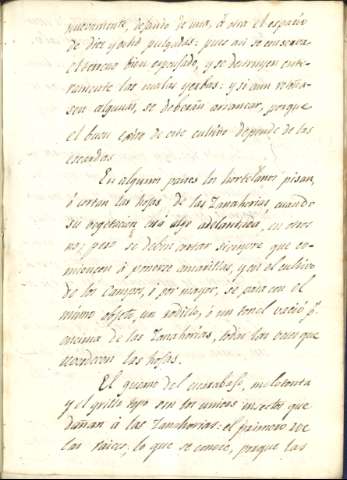 nuevamente, dejando de uno, á otro el espacio
de diez y ocho pulgadas: pues asi se conserva
el terreno bien mullido, y se destruyen ente-
ramente las malas yerbas: y si aun retoña-
sen algunas, se deberán arrancar, porque
el buen exito de este cultivo depende de las
escardas.
En algunos paises los hortelanos pisan,
ó cortan las hojas de las Zanahorias, cuando
su vegetacion está algo adelantada, en otros
no; pero se deben cortar siempre que co-
miencen á ponerse amarillas, y en el cultivo
de los campos, ó por mayor, se pasa con el
mismo objeto, un rodillo, ó un tonel vacio p.
encima de las Zanahorias, todas las veces que
las hojas.
El gusano del escarabajo,
y el grillo topo son los unicos insectos que
dañan á las Zanahorias: el primero roe
las raices, lo que se conoce, porque las